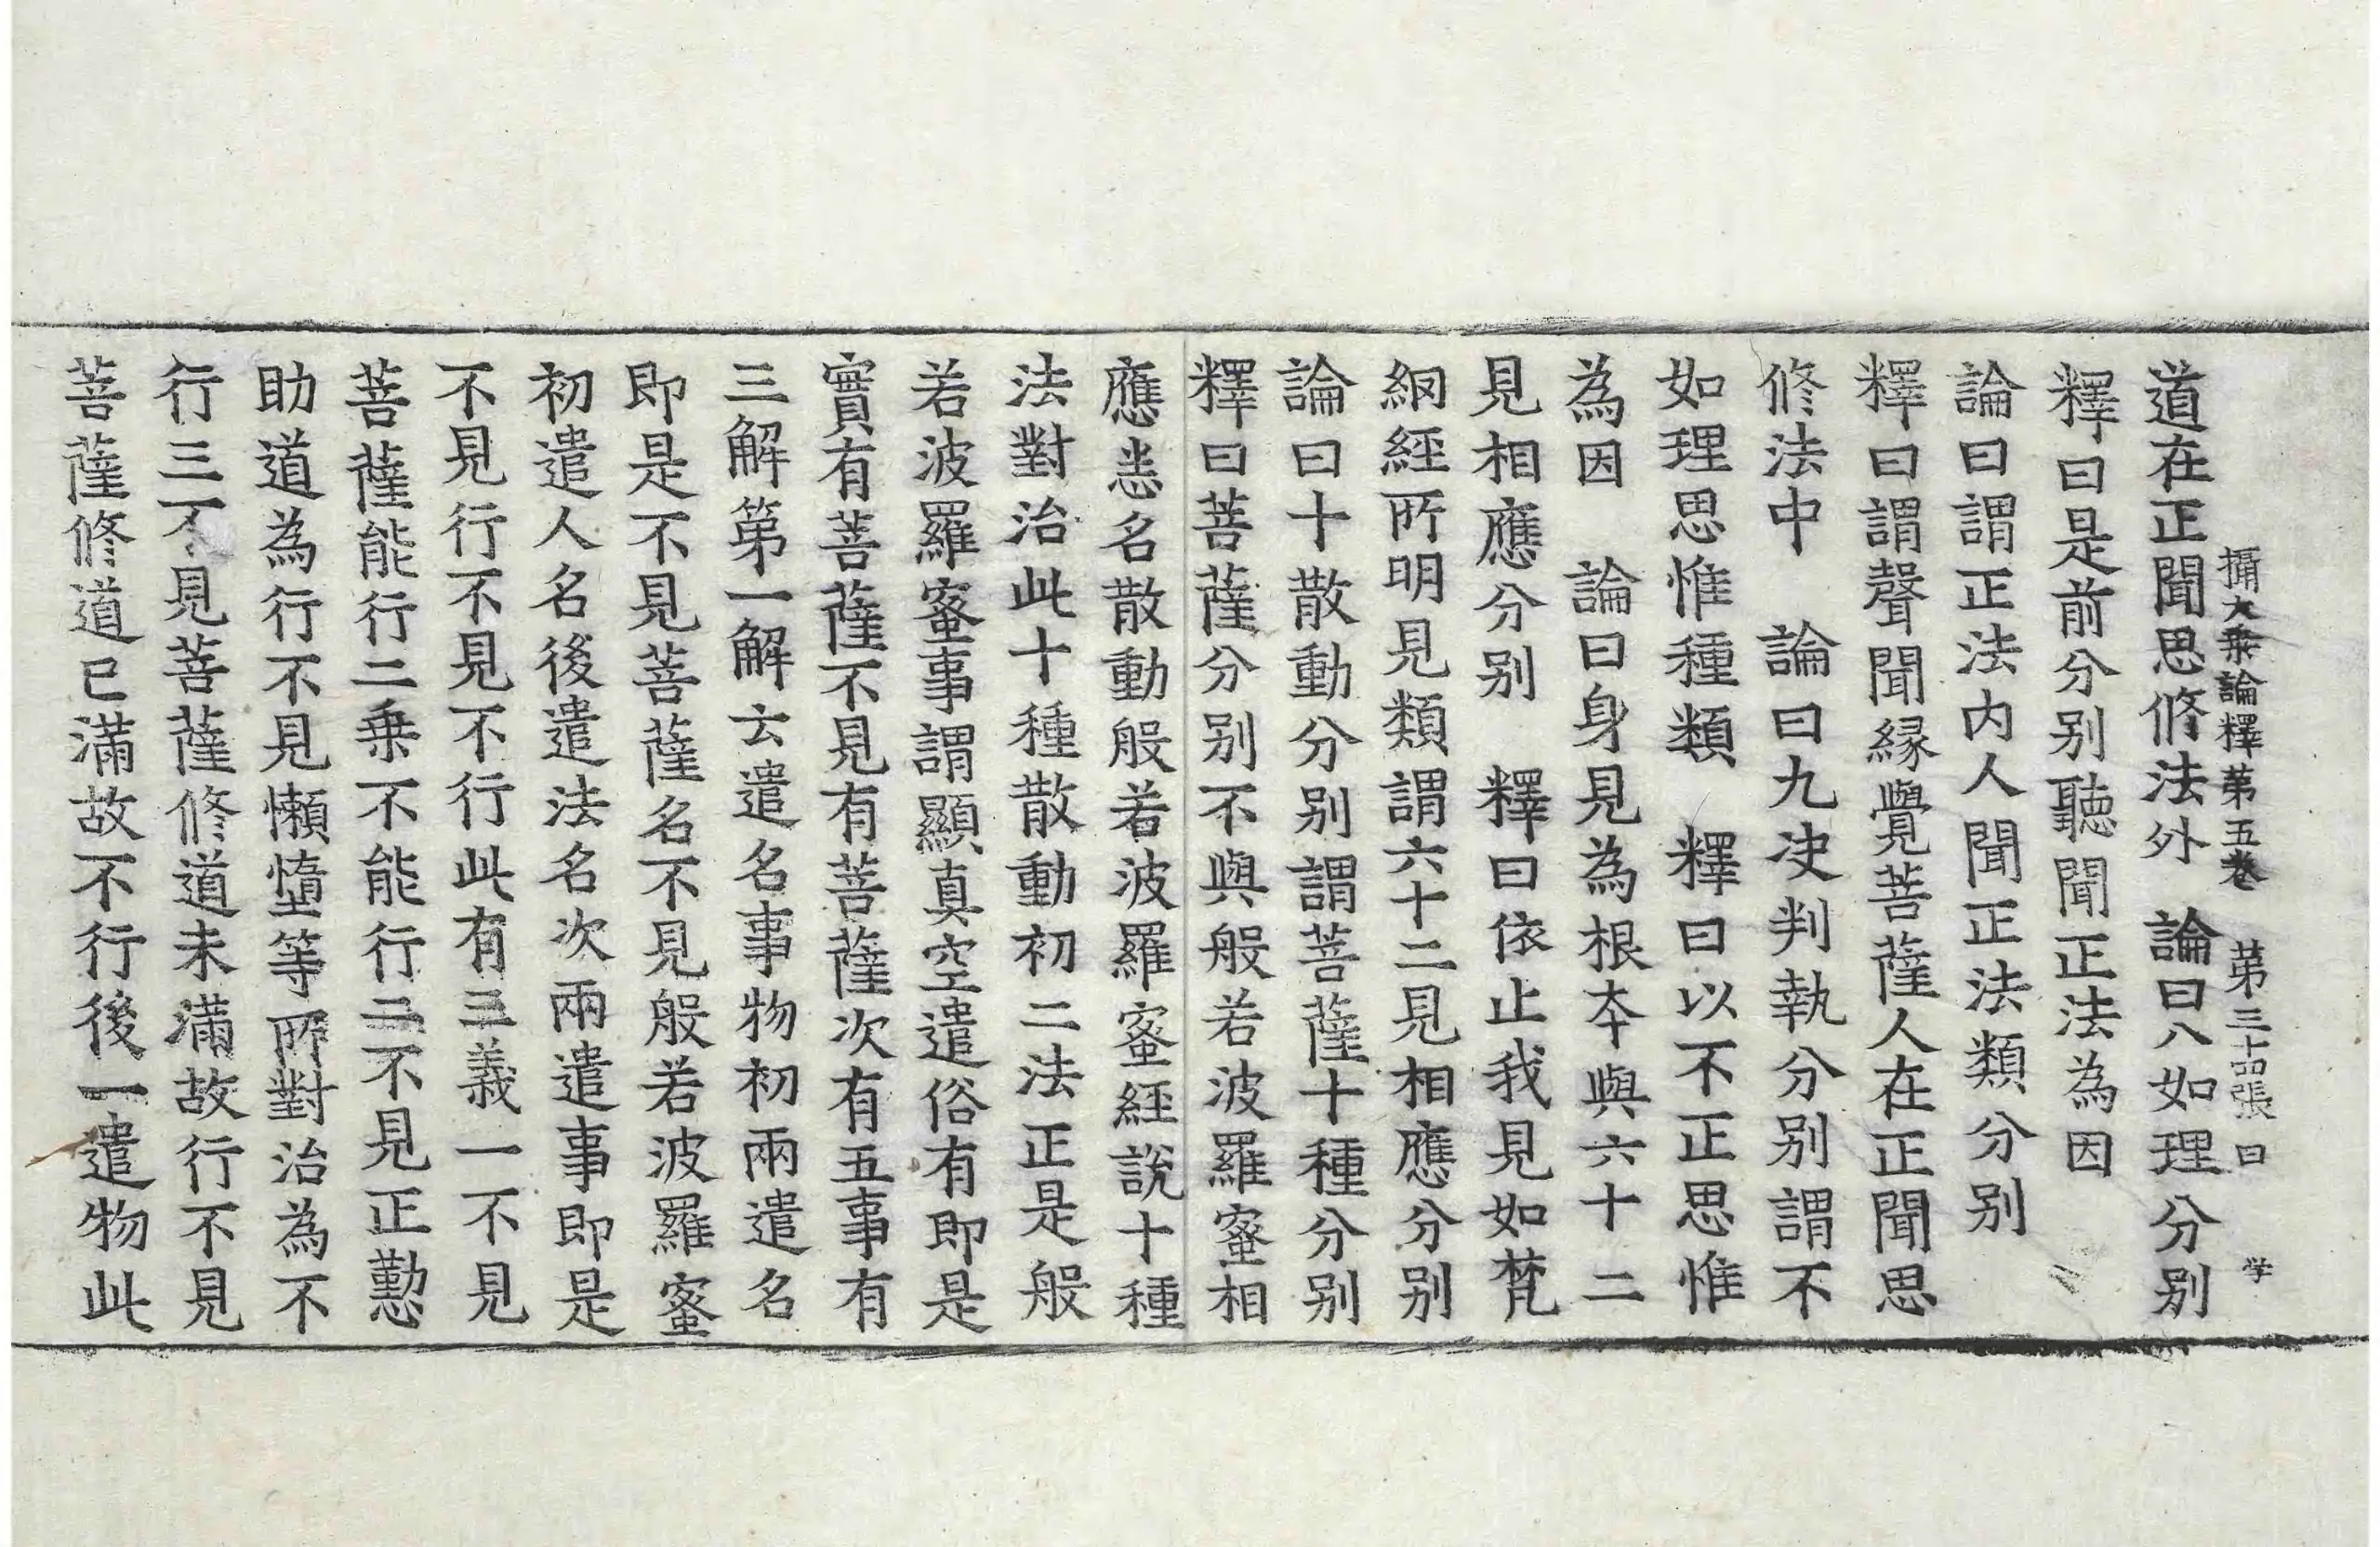 攝大乗論釋苐五卷　苐三十四張　曰　学
道在正聞思修法外　論曰八如理分别
釋曰是前分别聽聞正法為因
論曰謂正法内人聞正法類分别
釋曰謂聲聞縁覺菩薩人在正聞思
修法中　論曰九决判執分别謂不
如理思惟種類　釋曰以不正思惟
為因　論曰身見為根夲與六十二
見相應分别　釋曰依止我見如梵
網經所明見類謂六十二見相應分别
論曰十散動分别謂菩薩十種分别
釋曰菩薩分别不與般若波羅蜜相
應悉名散動般若波羅蜜經說十種
法對治此十種散動初二法正是般
若波羅蜜事謂顯真空遣俗有即是
實有菩薩不見有菩薩次有五事有
三解第一解云遣名事物初兩遣名
即是不見菩薩名不見般若波羅蜜
初遣人名後遣法名次兩遣事即是
不見行不見不行此有三義一不見
菩薩能行二乗不能行二不見正懃
助道為行不見懶惰等所對治為不
行三不見菩薩修道未滿故行不見
菩薩修道已滿故不行後一遣物此